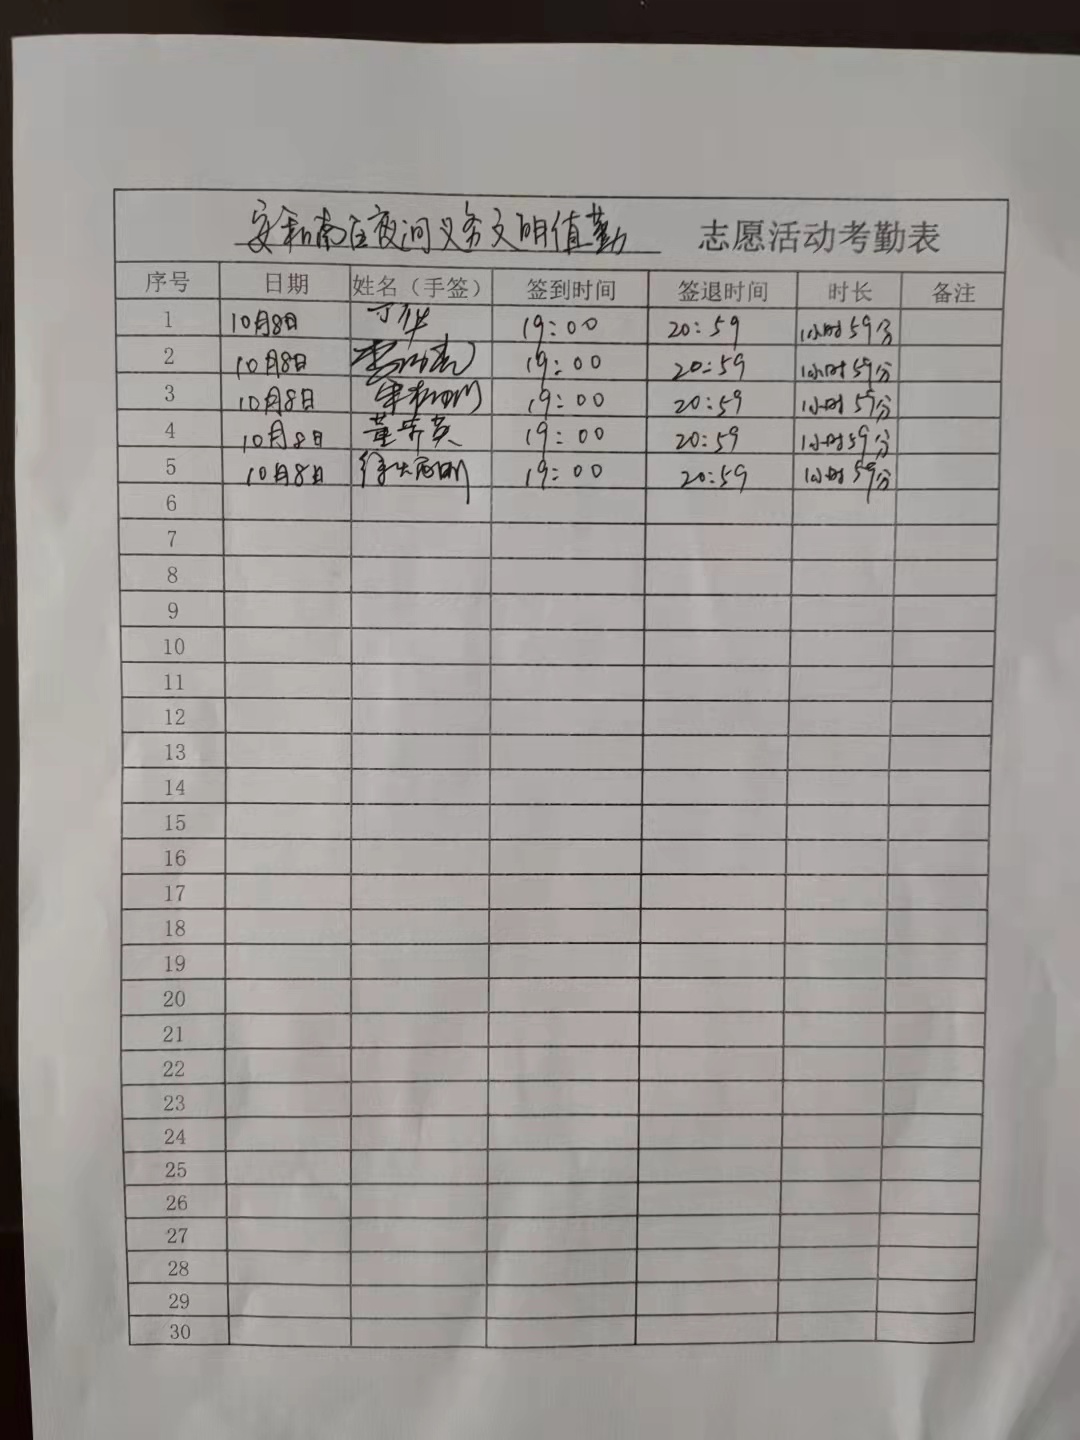 安和南区夜间义务文明值勤 志愿活动考勤表
序号 日期 姓名（手签） 签到时间 签退时间 时长 备注
1 10月8日 丁华 19:00 20:59 1小时59分
2 10月8日 19:00 20:59 1小时59分
3 10月8日 19:00 20:59 1小时59分
4 10月8日 董秀英 19:00 20:59 1小时59分
5 10月8日 19:00 20:59 1小时59分
6
7
8
9
10
11
12
13
14
15
16
17
18
19
20
21
22
23
24
25
26
27
28
29
30